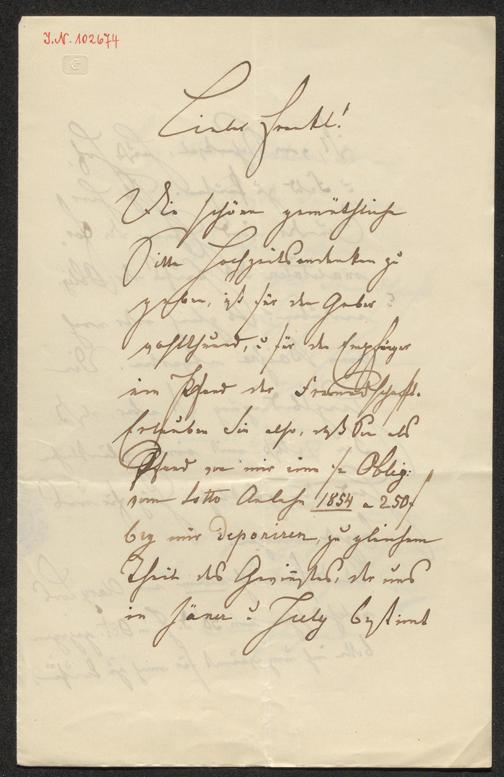 J.N. 102674
Lieber Frankl!
Die schöne gemüthliche
Sitte Hochzeitsandenken zu
geben, ist für den Geber
wohlthuend, u für den Empfänger
ein Pfand der Freundschaft.
Erlauben Sie also, daß Sie als
Pfand von mir eine Oblig:
vom Lotto Anlehn 1854 a 250f
bey mir deponiren, zu gleichem
Theile des Gewinstes, der uns
im Jäner u July bestimt